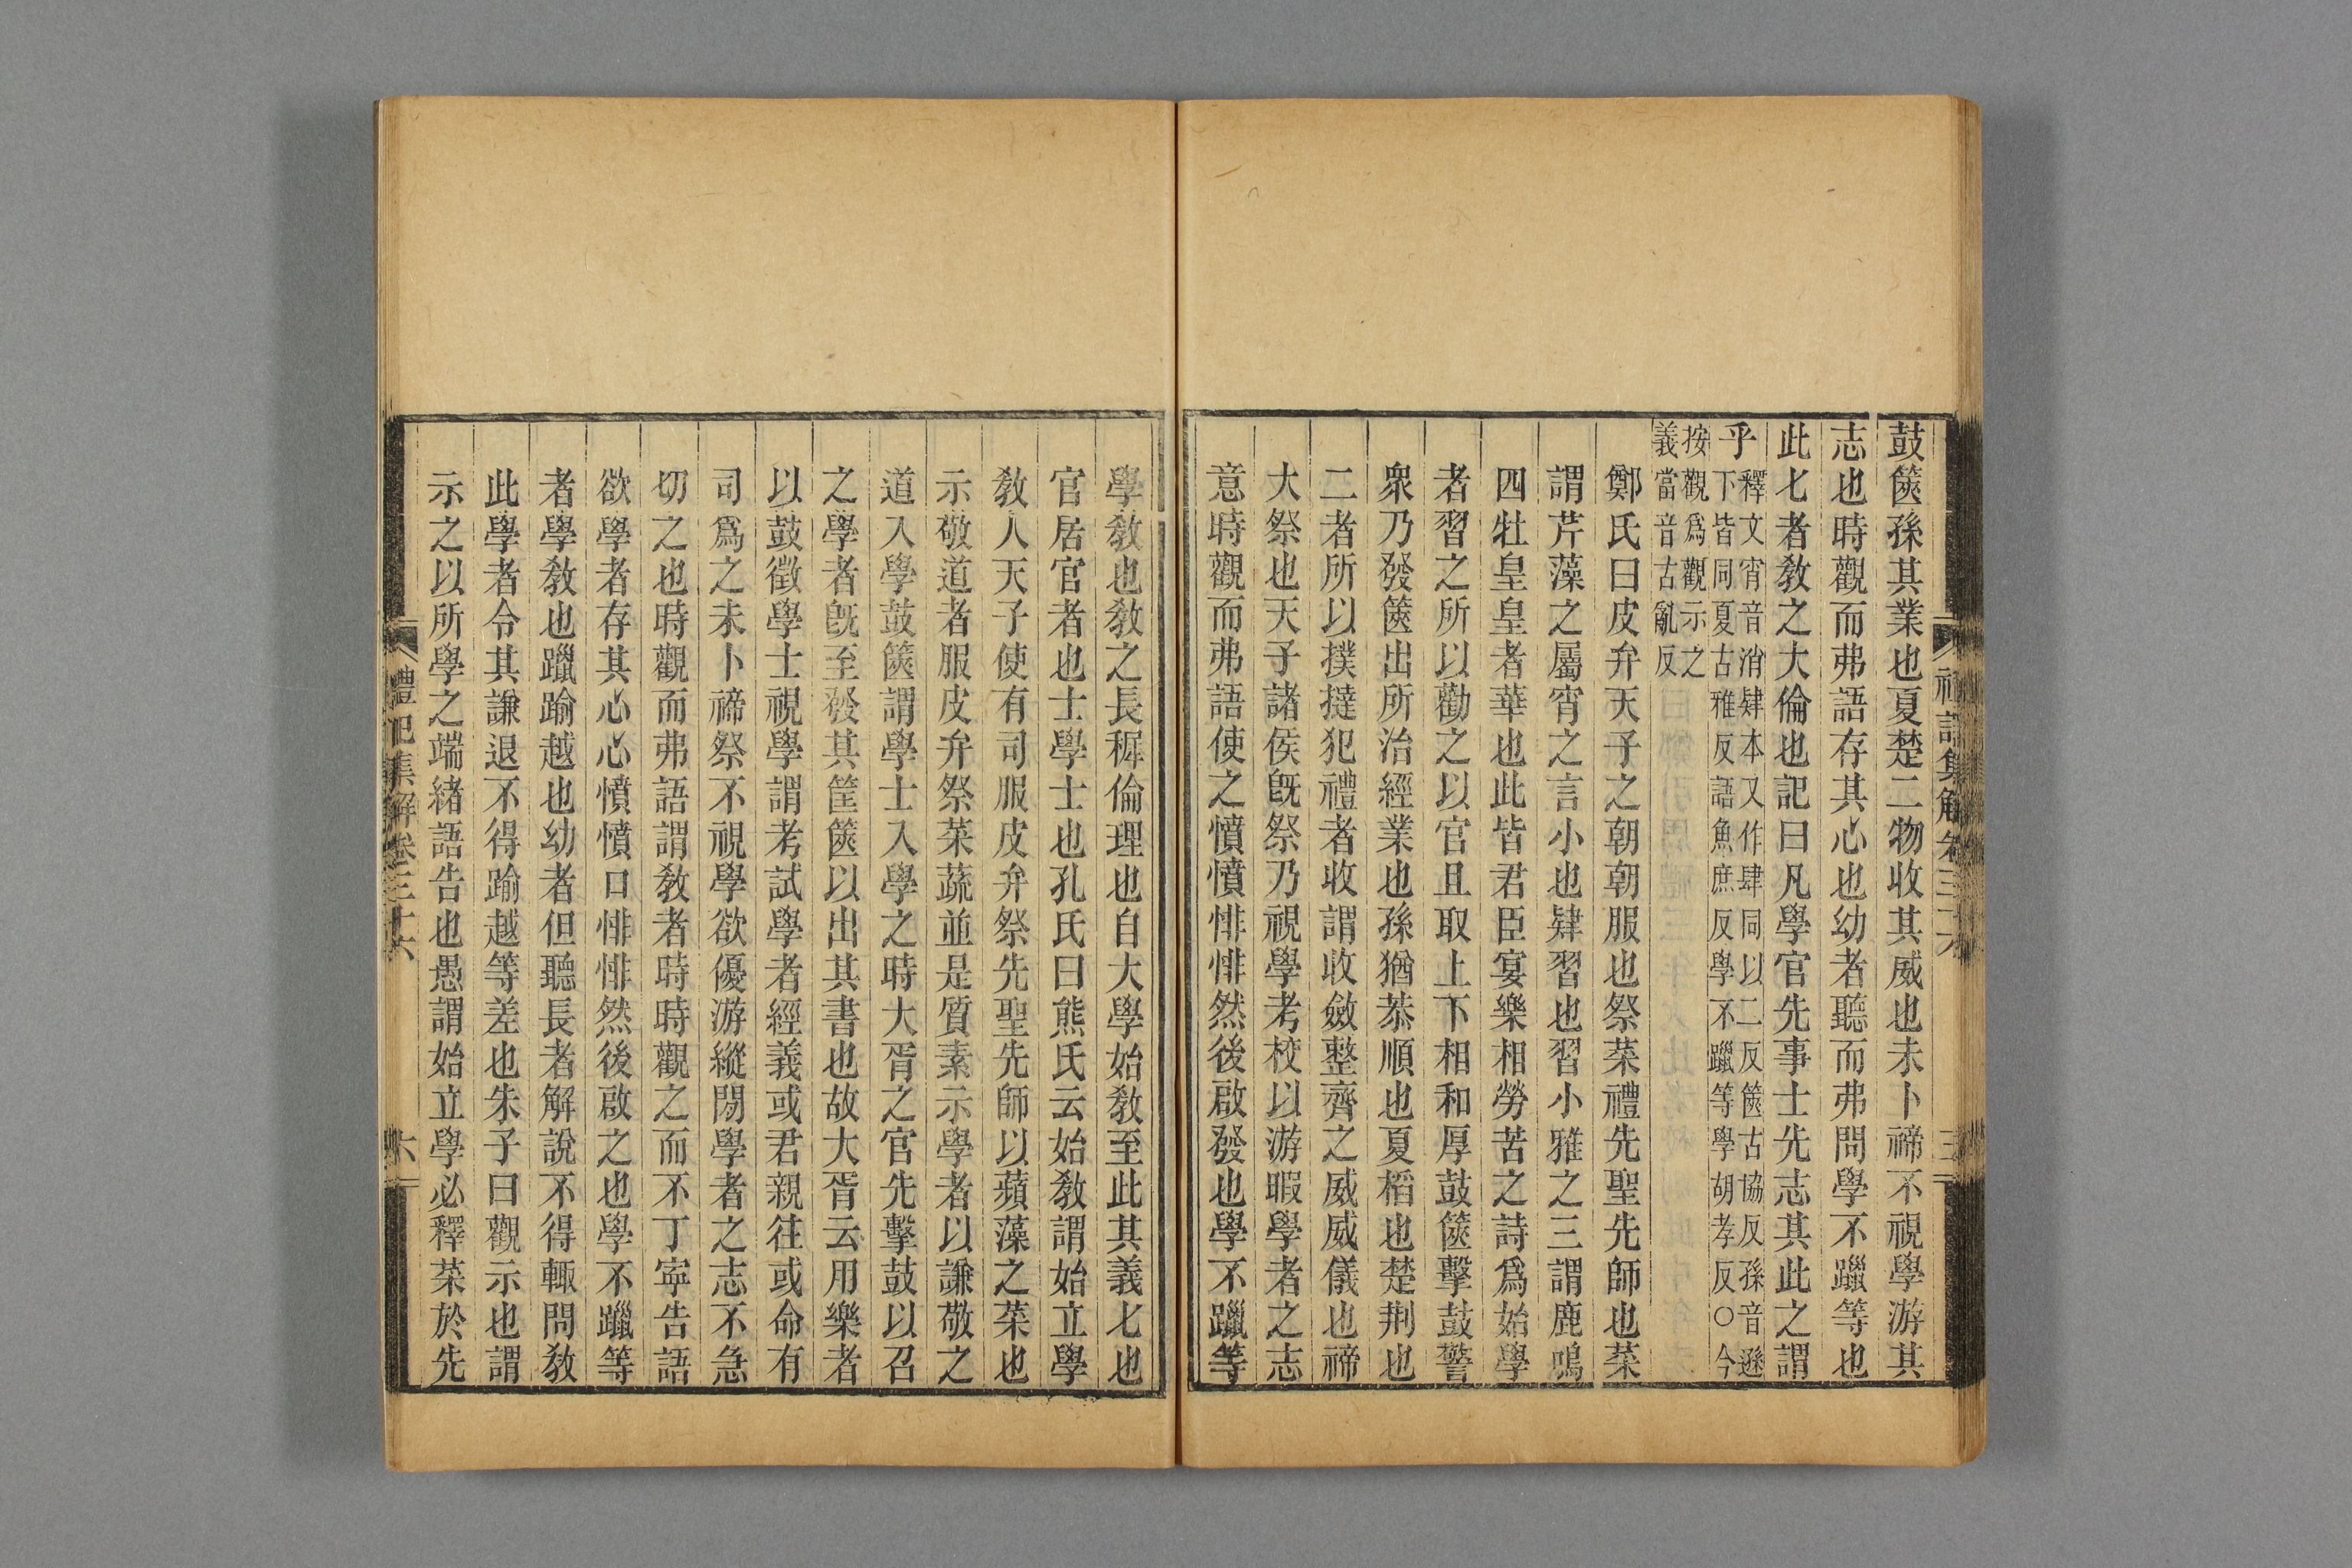 鼓篋孫其業也夏楚二物收其威也未卜禘不視學游其
志也時觀而弗語存其心也幼者聽而弗問學不躐等也
此七者敎之大倫也記曰凡學官先事士先志其此之謂
乎
釋文宵音消肄本又作肆同以二反篋古協反孫音遜
下皆同夏古雅反語魚庶反學不躐等學胡孝反○今
按觀爲觀示之
義當音古亂反
鄭氏曰皮弁天子之朝朝服也祭菜禮先聖先師也菜
謂芹藻之屬宵之言小也肄習也習小雅之三謂鹿鳴
四牡皇皇者華也此皆君臣宴樂相勞苦之詩爲始學
者習之所以勸之以官且取上下相和厚鼓篋擊鼓警
衆乃發篋出所治經業也孫猶恭順也夏榙也楚荆也
二者所以撲撻犯禮者收謂收斂整齊之威威儀也禘
大祭也天子諸侯旣祭乃視學考校以游暇學者之志
意時觀而弗語使之憤憤悱悱然後啟發也學不躐等
學敎也敎之長穉倫理也自大學始敎至此其義七也
官居官者也士學士也孔氏曰熊氏云始敎謂始立學
敎人天子使有司服皮弁祭先聖先師以蘋藻之菜也
示敬道者服皮弁祭菜蔬並是質素示學者以謙敬之
道入學鼓篋謂學士入學之時大胥之官先擊鼓以召
之學者旣至發其筐篋以出其書也故大胥云用樂者
以鼓徵學士視學謂考試學者經義或君親往或命有
司爲之未卜禘祭不視學欲優游縱閒學者之志不急
切之也時觀而弗語謂敎者時時觀之而不丁寧告語
欲學者存其心心憤憤口悱悱然後啟之也學不躐等
者學敎也躐踰越也幼者但聽長者解說不得輒問敎
此學者令其謙退不得踰越等差也朱子曰觀示也謂
示之以所學之端緒語告也愚謂始立學必釋菜於先
禮記集解卷三十六
六